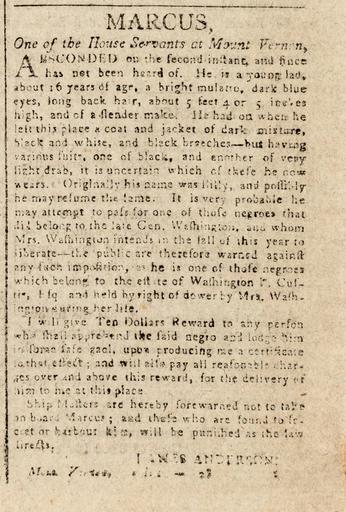 MARCUS,
One of the House Servants at Mount Vernon,
ABSCONDED on the second instant, and since
has not been heard of. He is a young lad,
about 16 years of age, a bright mulatto, dark blue
eyes, long back hair, about 5 feet 4 or 5 inches
high, and of a slender make. He had on when he
left this place a coat and jacket of dark mixture,
black and white, and black breeches—but having
various suits, one of black, and another of very
light drab, it is uncertain which of these he now
wears. Originally his name was Billy, and possibly
he may resume the same. It is very probable he
may attempt to pass for one of those negroes that
did belong to the late Gen. Washington, and whom
Mrs. Washington intends in the fall of this year to
liberate—the public are therefore warned against
any such imposition, as he is one of those negroes
which belong to the estate of Washington P. Cus-
tis, Esq. and held by right of dower by Mrs. Wash-
ington during her life.
I will give Ten Dollars Reward to any person
who shall apprehend the said negro and lodge him
in some safe gaol, upon producing me a certificate
to that effect; and will also pay all reasonable char-
ges over and above this reward, for the delivery of
him to me at this place.
Ship Masters are hereby forewarned not to take
on board Marcus; and those who are found to se-
cret or harbour him, will be punished as the law
directs.
JAMES ANDERSON.
Mount Vernon,